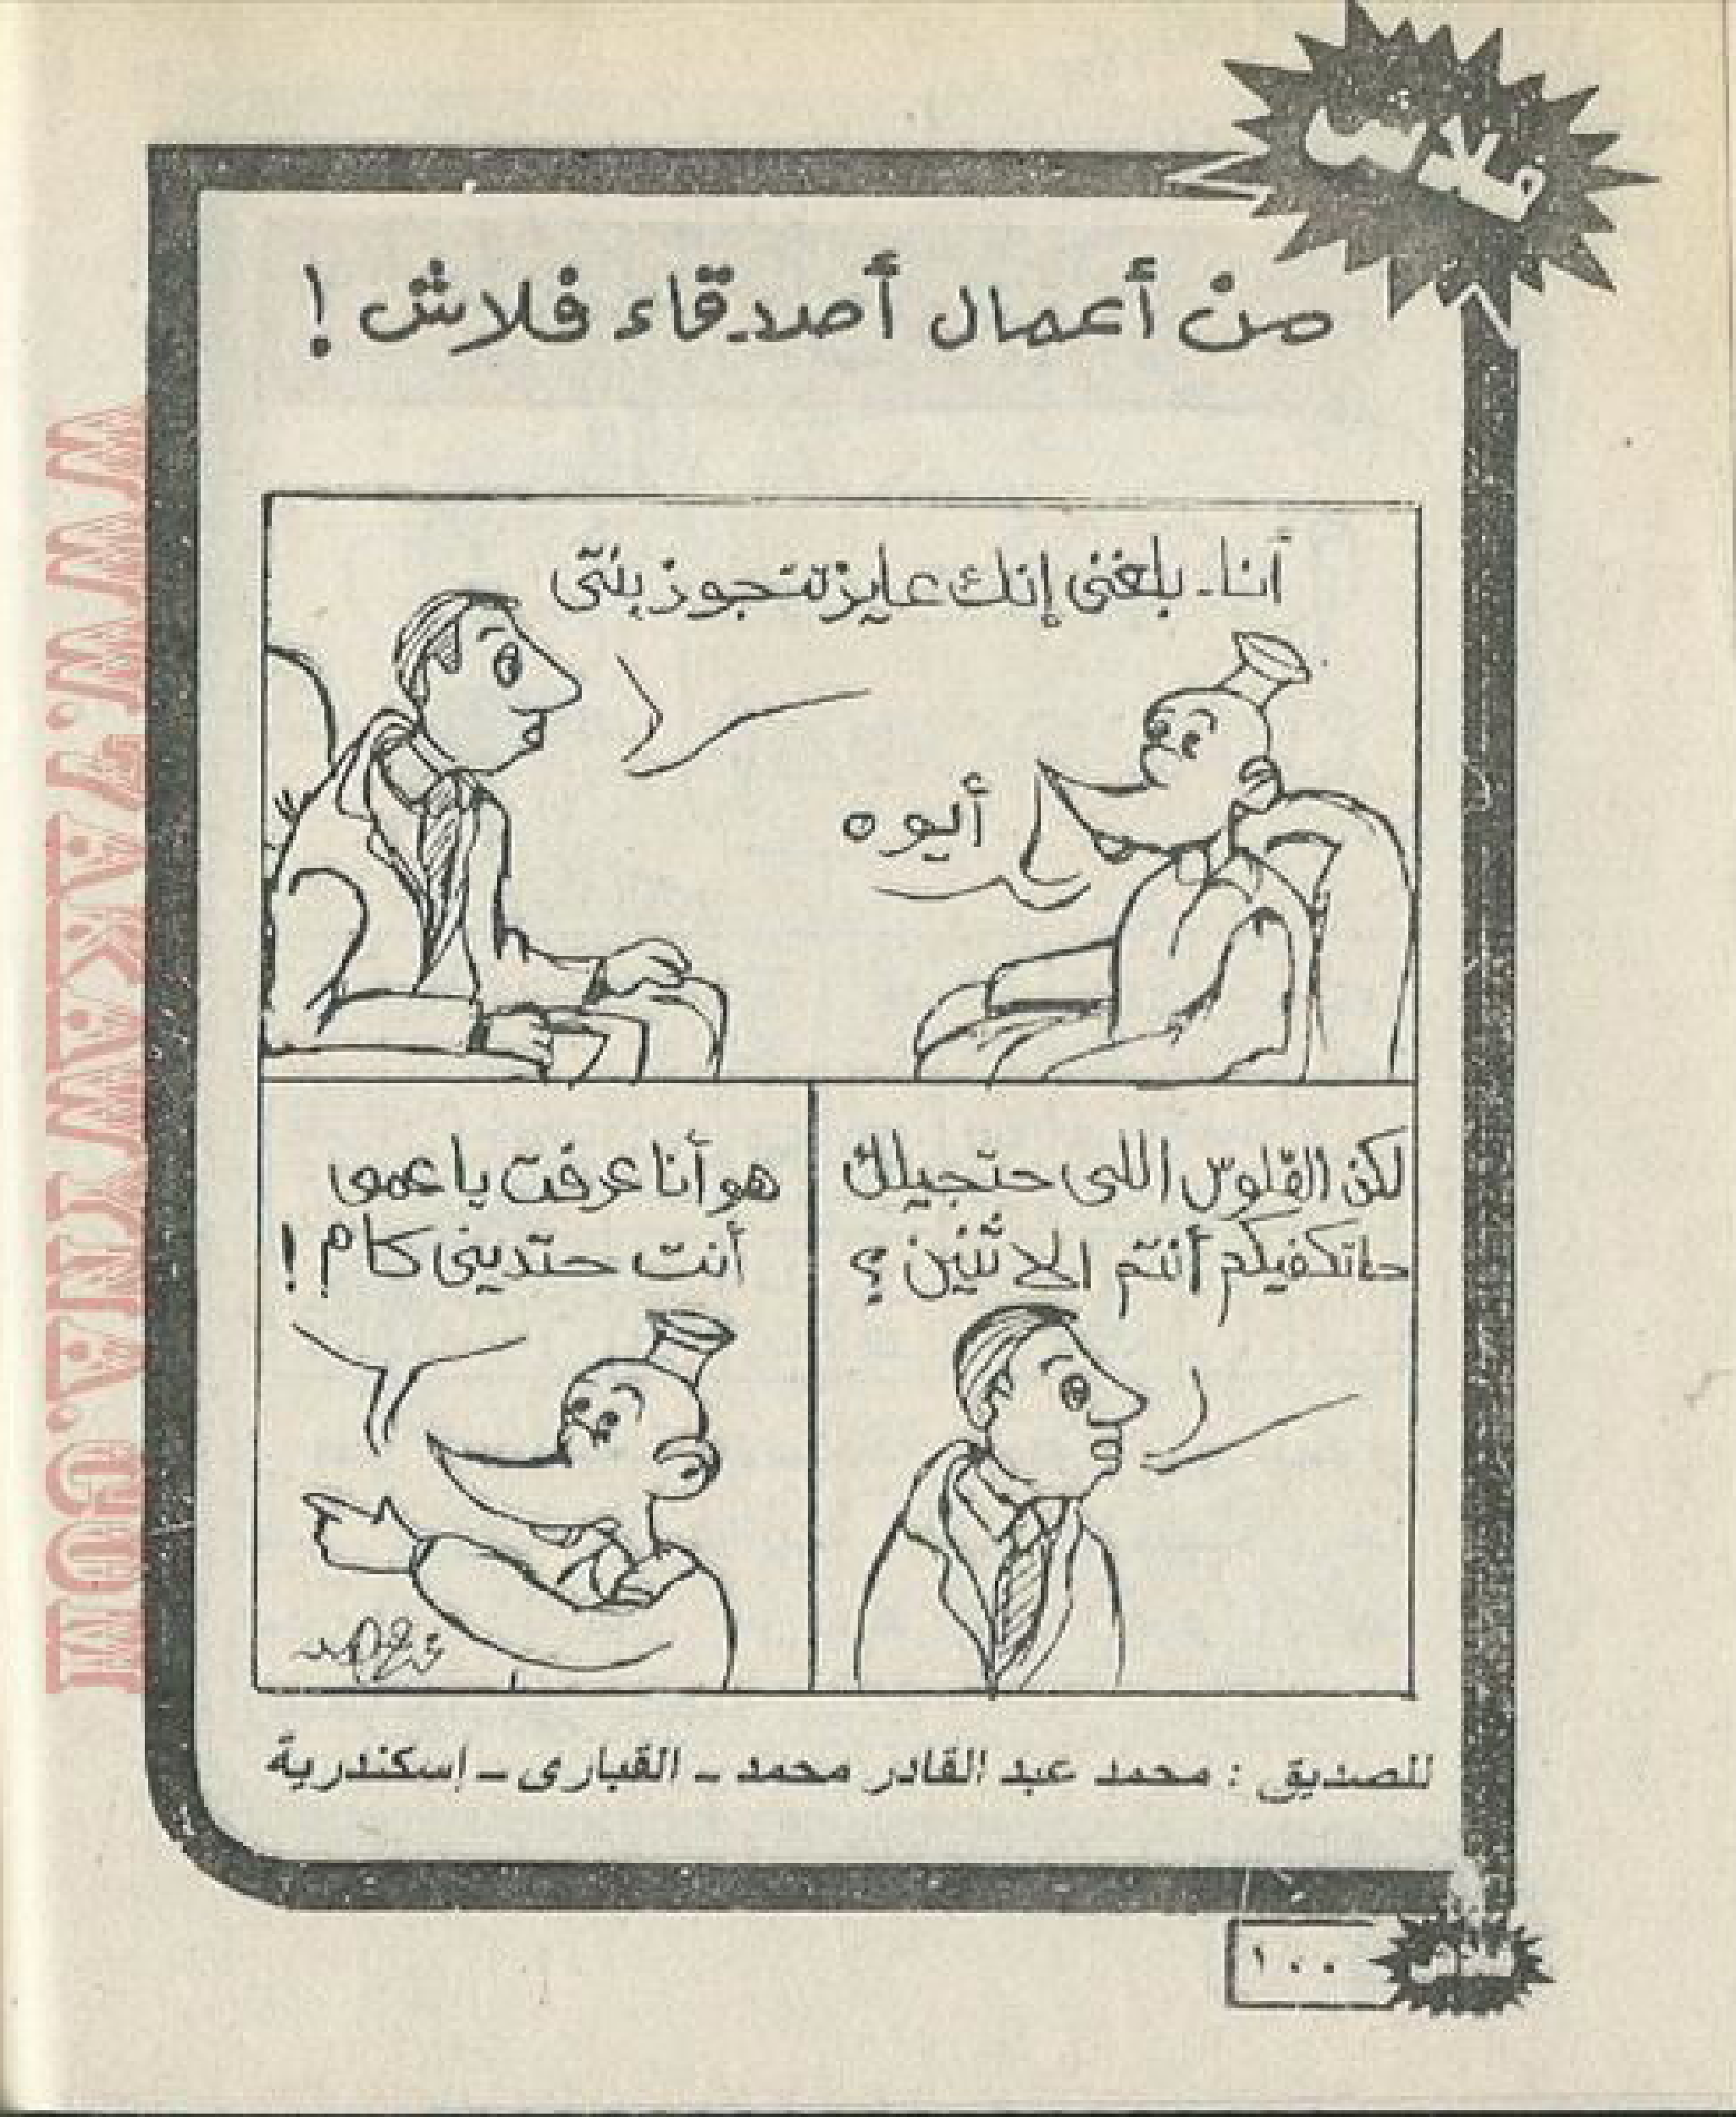 فلاش
من أعمال أصدقاء فلاش !
أنا بلغنى إنك عايز تتجوز بنتى
أيوه
لكن الفلوس اللى حتجيلك
حاتكفيكم أنتم الاثنين ؟
هو أنا عرفت يا عمى
أنت حتدينى كام !
للصديق : محمد عبد القادر محمد - القبارى - إسكندرية
١٠٠
فلاش